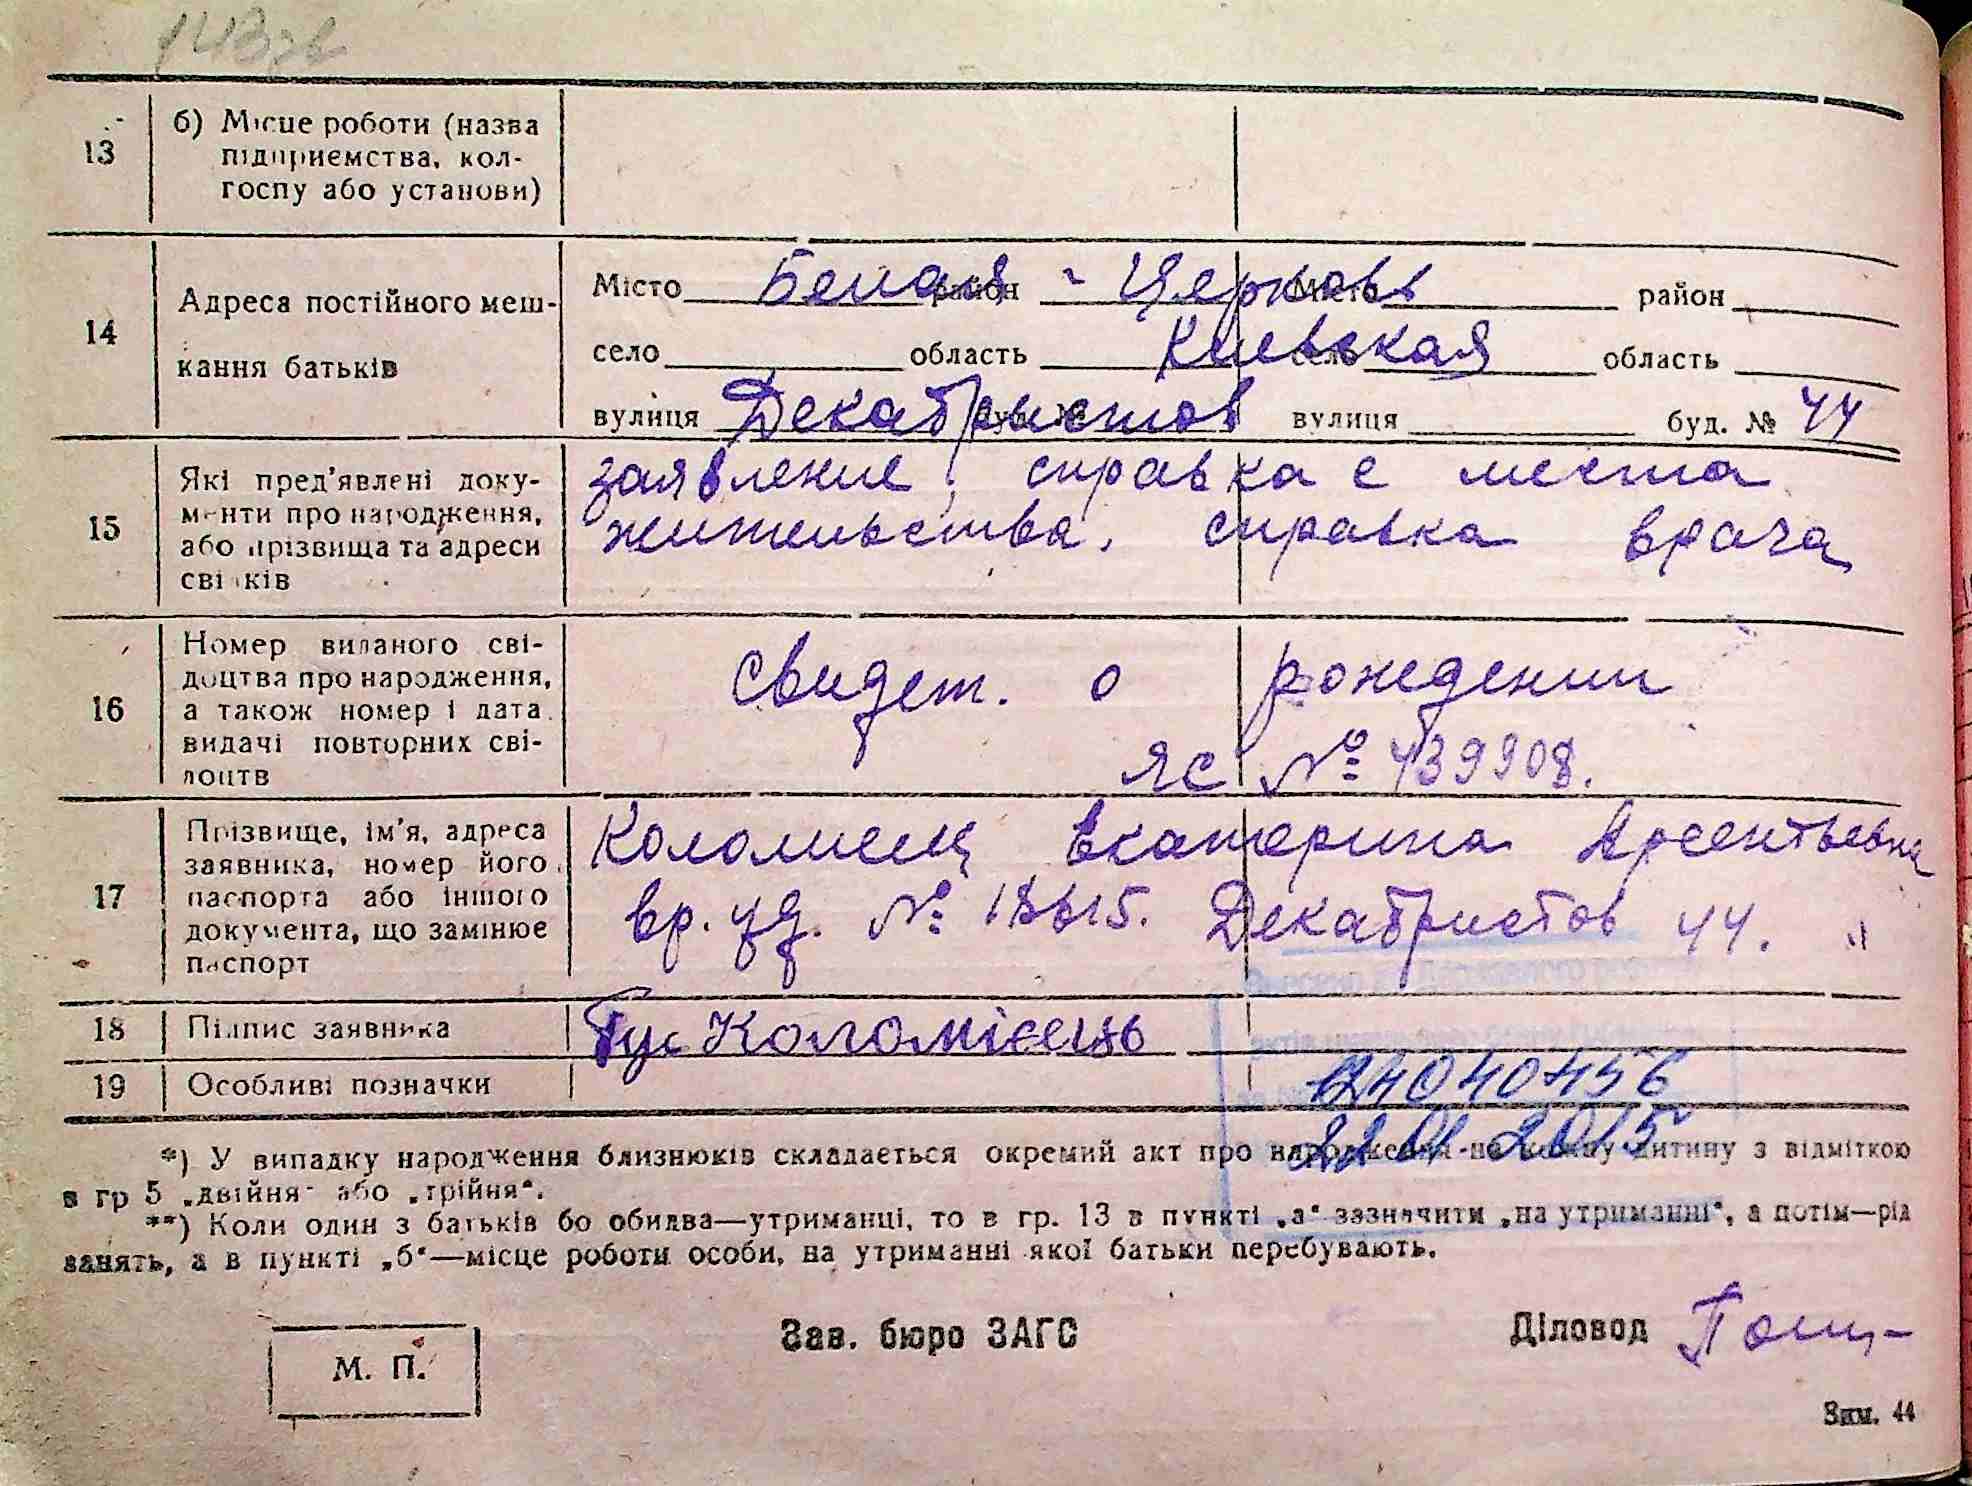 13 б) Місце роботи (назва
підприємства, кол-
госпу або установи)
14 Адреса постійного меш-
кання батьків
Місто Белая - Церковь район Місто район
село область Киевская село область
вулиця Декабристов буд. № вулиця буд. № 44
15 Які пред'явлені доку-
менти про народження,
або прізвища та адреси
свідків
заявление, справка с места
жительства, справка врача
16 Номер виданого сві-
доцтва про народження,
а також номер і дата
видачі повторних сві-
доцтв
свидет. о рождении
ЯС № 439908.
17 Прізвище, ім'я, адреса
заявника, номер його
паспорта або іншого
документа, що замінює
паспорт
Коломиец Екатерина Арсентьевна
вр. уд. № Декабристов 44.
18 Підпис заявника Коломієць
19 Особливі позначки
22 01 2015
*) У випадку народження близнюків складається окремий акт про народження на кожну дитину з відміткою
в гр 5 „двійня" або „трійня".
**) Коли один з батьків бо обидва—утриманці, то в гр. 13 в пункті „а" зазначити „на утриманні", а потім—рід
занять, а в пункті „б"—місце роботи особи, на утриманні якої батьки перебувають.
Зав. бюро ЗАГС Діловод
М. П.
Зим. 44